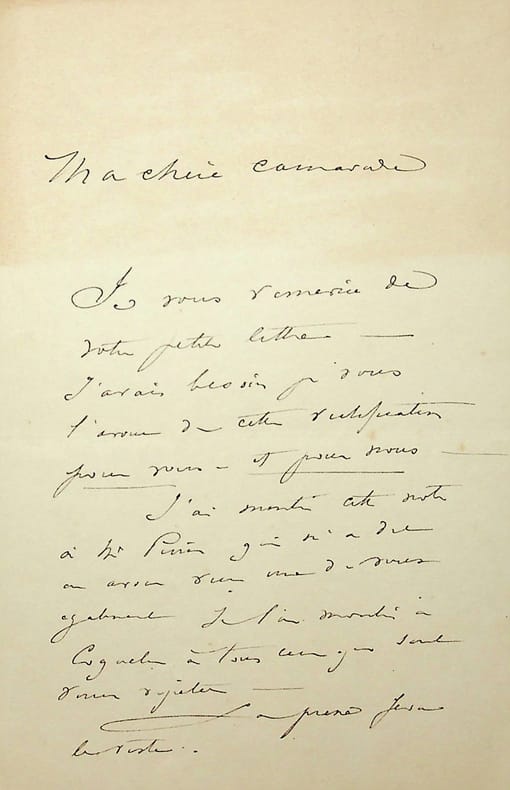 Ma chère camarade
Je vous remercie de
votre petite lettre —
J'avais besoin je vous
l'avoue de cette rectification
pour vous – et pour nous —
J'ai montré cette note
à Mr Perrin qui m'a dit
en avoir reçu une de vous
également Je l'ai montrée à
Coquelin à tous ceux qui sont
venus
La presse fera
le reste..